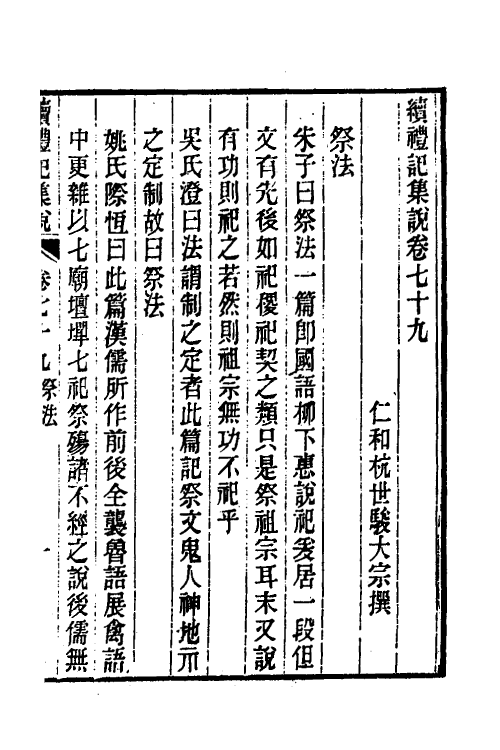 續禮記集說卷七十九
仁和杭世駿大宗撰
祭法
朱子曰祭法一篇卽國語柳下惠說祀爰居一段但
文有先後如祀稷祀契之類只是祭祖宗耳末又說
有功則祀之若然則祖宗無功不祀乎
吳氏澄曰法謂制之定者此篇記祭文鬼人神地示
之定制故曰祭法
姚氏際恆曰此篇漢儒所作前後全襲魯語展禽語
中更雜以七廟壇墠七祀祭殤諸不經之說後儒無
續禮記集說 卷七十九 祭法 一